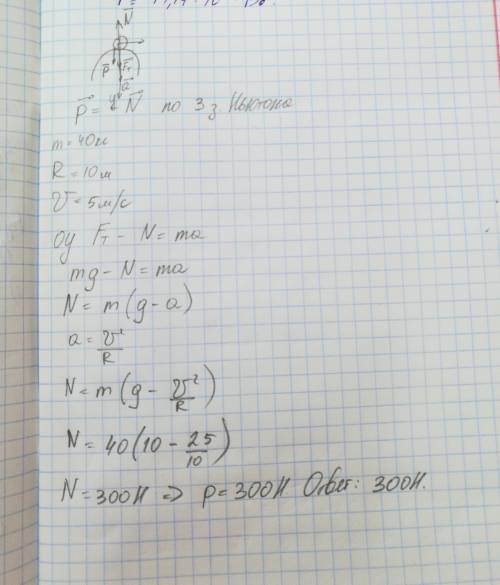 N
P Fт
a
y
P = N по 3 з Ньютона
m = 40м
R = 10м
v = 5м/с
оу Fт - N = ma
mg - N = ma
N = m(g - a)
a = v²/R
N = m(g - v²/R)
N = 40(10 - 25/10)
N = 300Н => p = 300Н Ответ: 300Н.